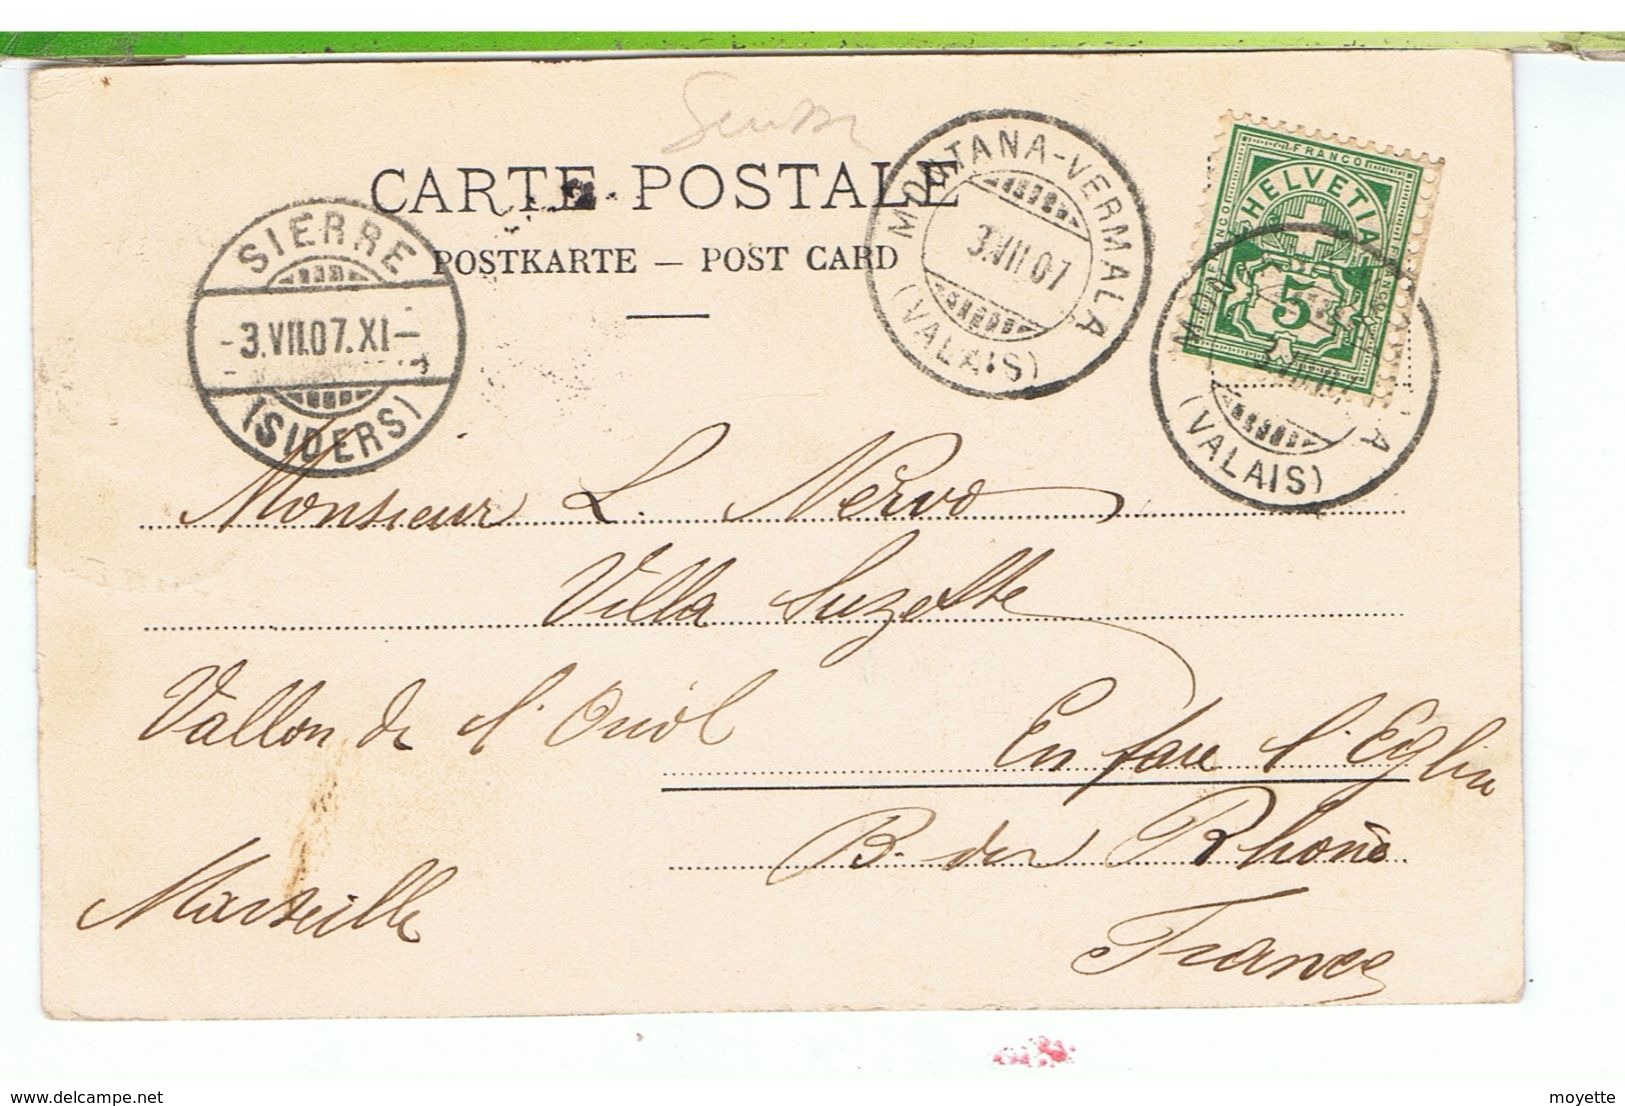 Suisse
CARTE POSTALE
POSTKARTE — POST CARD
MONTANA-VERMALA
3.VII.07
(VALAIS)
FRANCO
HELVETIA
5
(VALAIS)
SIERRE
-3.VII.07.XI-
(SIDERS)
Monsieur L. Nervo
Villa Suzette
Vallon de l'Oriol
En face l'Eglise
B. du Rhône
Marseille
France
delcampe.net
moyette